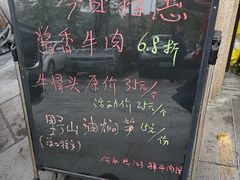 今日特惠
酱香牛肉 6.8折
牛骨头 原价 35元/个
活动价 25元/个
野山油焖笋 15元/份